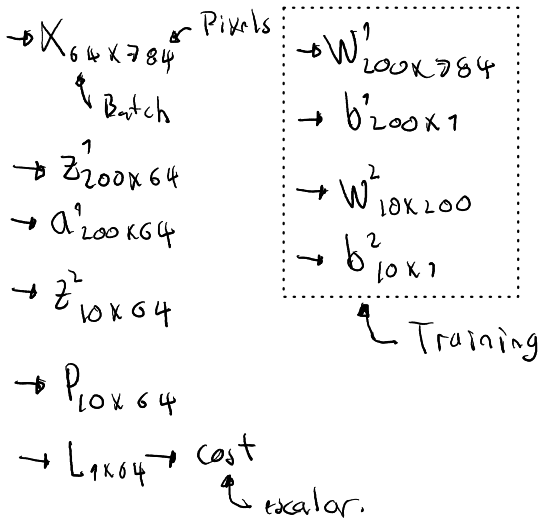 → X 64x784 ← Pixels
Batch
→ z¹ 200x64
→ a¹ 200x64
→ z² 10x64
→ P 10x64
→ L 1x64 → cost
escalar.
→ W¹ 200x784
→ b¹ 200x1
→ W² 10x200
→ b² 10x1
Training